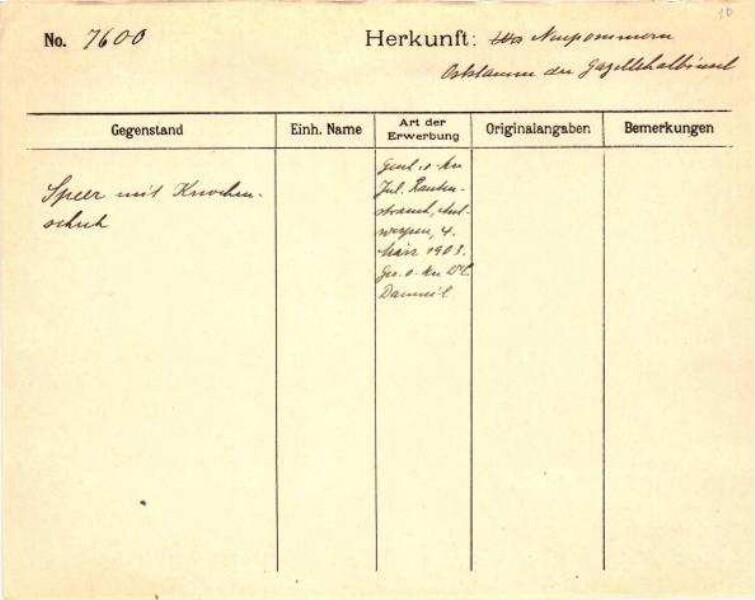 10
No. 7600 Herkunft: Neupommern
Oststamm der Gazellehalbinsel
Gegenstand Einh. Name Art der Erwerbung Originalangaben Bemerkungen
Speer mit Knochen-
schuh
Gesch. v. Hrn
Jul. Rauten-
strauch, Ant-
werpen, 4.
März 1903.
Ges. v. Hrn
Dammeil